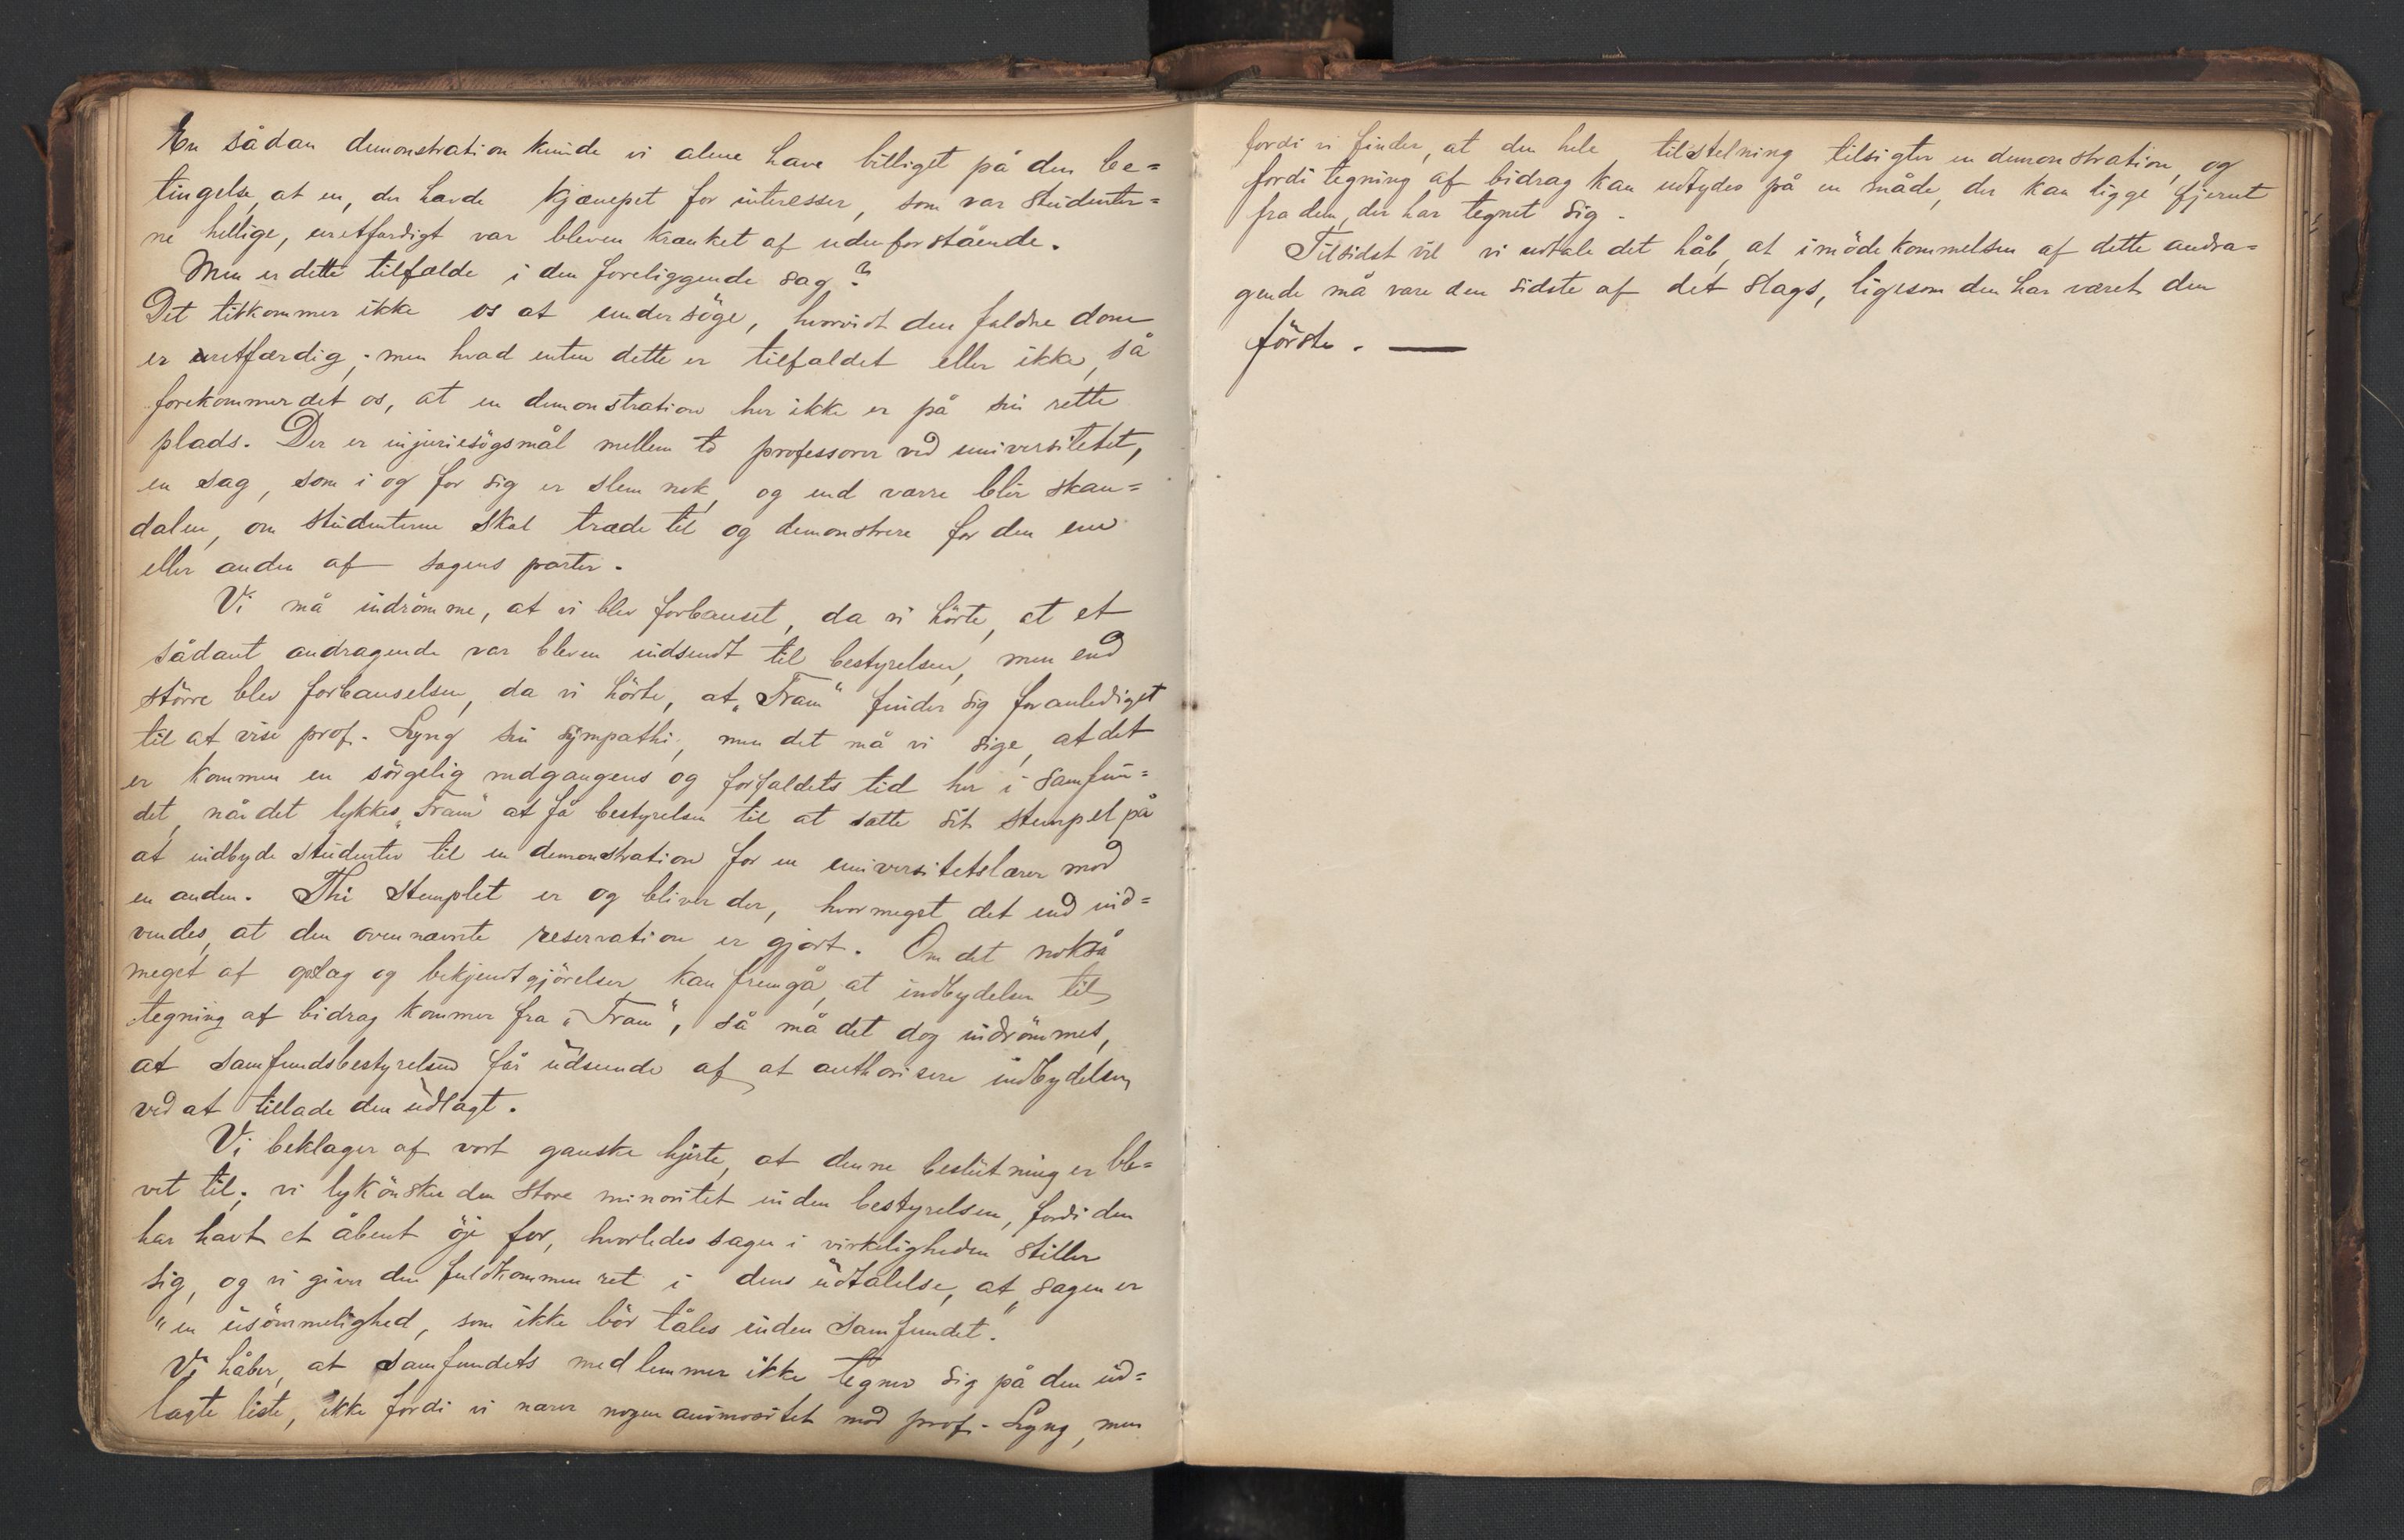 En sådan demonstration kunde vi alene have billiget på den be=
tingelse, at en, der havde kjæmpet for interesser, som var studenter=
ne hellige, uretfærdigt var bleven krænket af udenforstående.
Men er dette tilfælde i den foreliggende sag?
Det tilkommer ikke os at undersöge, hvorvidt den faldne dom
er uretfærdig; men hvad enten dette er tilfældet eller ikke, så
forekommer det os, at en demonstration her ikke er på sin rette
plads. Der er injuriesögsmål mellem to professorer ved universitetet,
en sag, som i og for sig er slem nok, og end værre blir skan=
dalen, om studenterne skal træde til og demonstrere for den ene
eller anden af sagens parter.
Vi må indrömme, at vi blev forbauset, da vi hörte, at et
sådant andragende var bleven indsendt til bestyrelsen, men end
större blev forbauselsen, da vi hörte, at „Fram“ finder sig foranlediget
til at vise prof. Lyng sin sympathi, men det må vi sige, at det
er kommen en sörgelig nedgangens og forfaldets tid her i Samfun=
det, når det lykkes „Fram“ at få bestyrelsen til at sætte sit stempel på
at indbyde studenter til en demonstration for en universitetslærer mod
en anden. Thi stemplet er og bliver der, hvormeget det end ind=
vendes, at den ovennævnte reservation er gjort. Om det nokså
meget af opslag og bekjendtgjörelser kan fremgå, at indbydelsen til
tegning af bidrag kommer fra „Fram“, så må det dog indrömmes,
at Samfundsbestyrelsen får udseende af at authorisere indbydelsen
ved at tillade den udlagt.
Vi beklager af vort ganske hjerte, at denne beslutning er ble=
vet til; vi lykönsker den store minoritet inden bestyrelsen, fordi den
har havt et åbent öje for, hvorledes sagen i virkeligheden stiller
sig, og vi giver den fuldkommen ret i dens udtalelse, at „sagen er
"en usömmelighed, som ikke bör tåles inden Samfundet."
Vi håber, at Samfundets medlemmer ikke tegner sig på den ud=
lagte liste, ikke fordi vi nærer nogen animositet mod prof. Lyng, men
fordi vi finder, at den hele tilstelning tilsigter en demonstration, og
fordi tegning af bidrag kan udtydes på en måde, der kan ligge fjernt
fra dem, der har tegnet sig.
Tilsidst vil vi udtale det håb, at imödekommelsen af dette andra=
gende må være den sidste af det slags, ligesom den har været den
förste. —